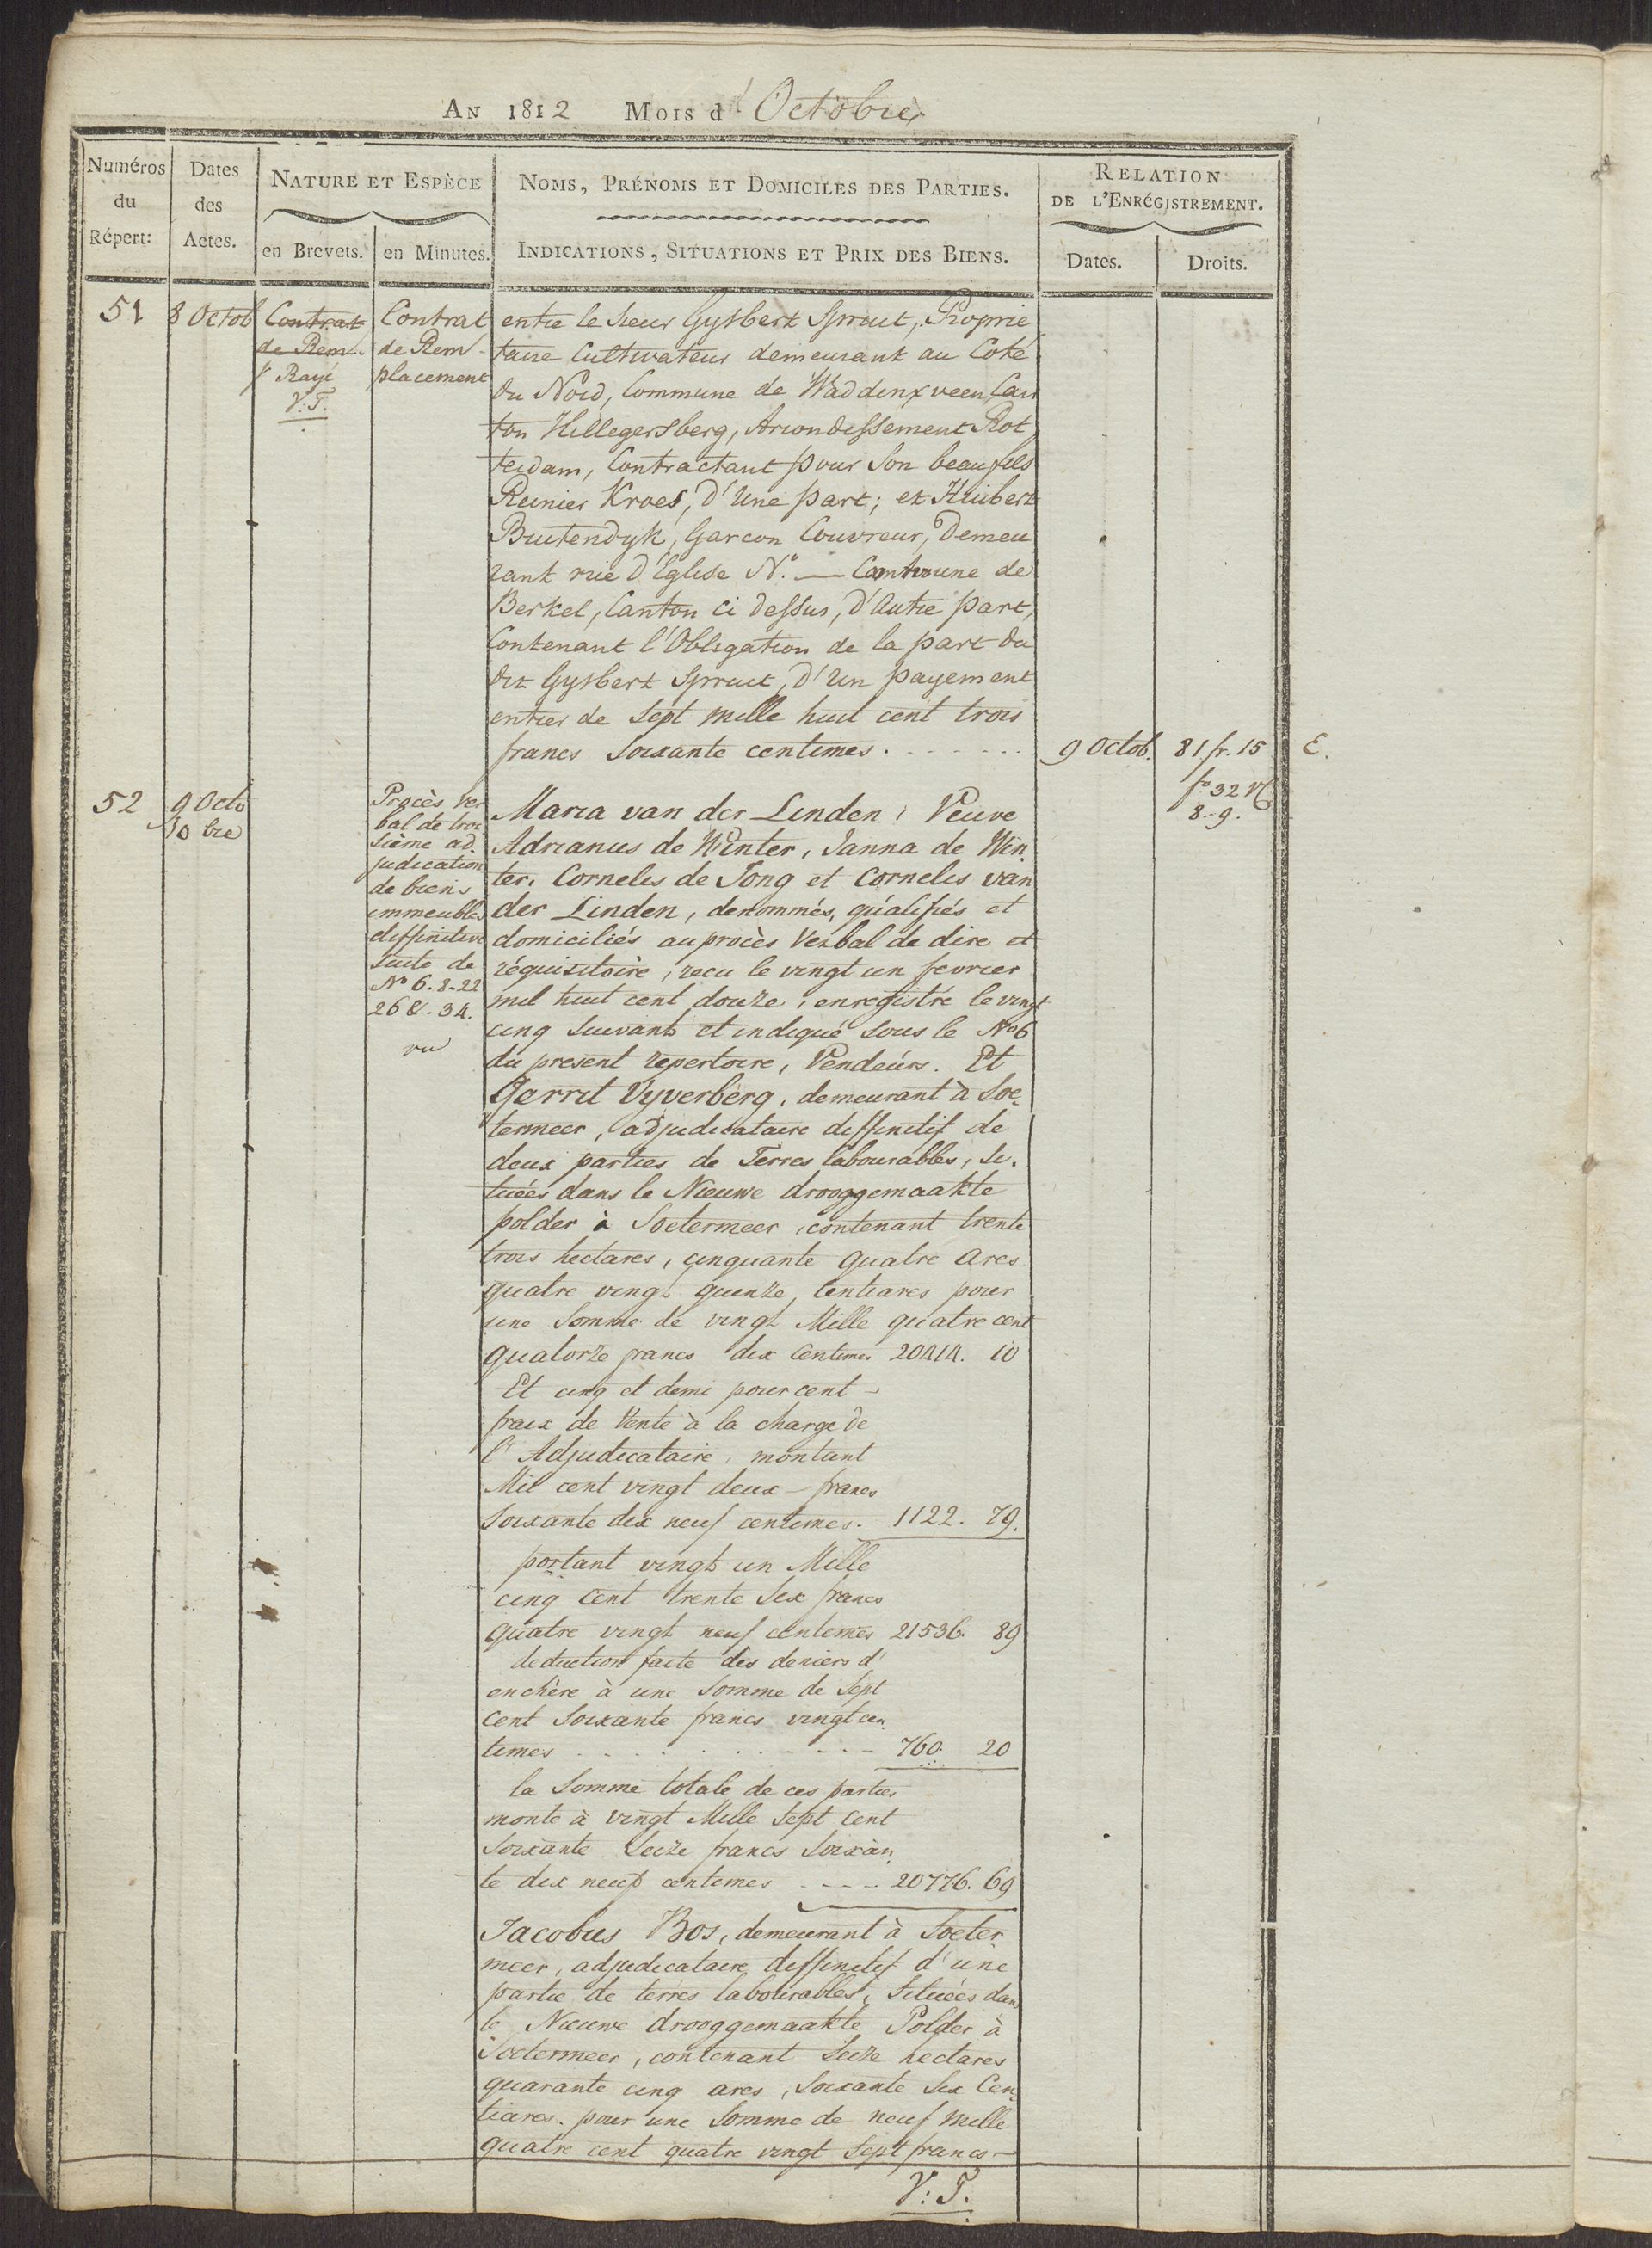 AN 1812 MOIS d' Octobre
Numéros du Répert:
Dates des Actes.
NATURE ET ESPÈCE
en Brevets.
en Minutes.
NOMS, PRÉNOMS ET DOMICILES DES PARTIES.
INDICATIONS, SITUATIONS ET PRIX DES BIENS.
RELATION
DE L'ENRÉGISTREMENT.
Dates.
Droits.
51
8 Octob
Contrat
de Rem-
Rayé
V:T.
Contrat
de Rem-
placement
entre le sieur Gysbert Spruit, Proprié
taire Cultivateur demeurant au Coté
du Nord, Commune de Waddinxveen, Can
ton Hillegersberg, Arrondessement Rot
terdam, Contractant pour son beaufils
Reinier Kroes, d'une part; et Huibert
Buitendyk, Garcon Couvreur, Demeu
rant rue d'Eglise No. — Commune de
Berkel, Canton ci dessus, d'Autre part,
Contenant l'Obligation de la part du
dit Gysbert Spruit, d'un payement
entier de sept mille huit cent trois
francs soixante centimes . - - - - - -
9 Octob.
81 fr. 15
E.
fo 32 
8-9.
52
9 Octo
bre
Procès ver
bal de troi
sième ad.
judication
de biens
immeubles
diffinitive
suite de
No 6. 8-22
26 &. 34.
vu
Maria van der Linden, Veuve
Adrianus de Winter, Janna de Win.
ter, Cornelis de Jong et Cornelis van
der Linden, denommés, qualifiés et
domiciliés au procès Verbal de dire et
réquisitoire, recu le vingt un fevrier
mil huit cent douze, enregistré le vingt
cinq suivant et indiqué sous le No 6
du present repertoire, Vendeurs. Et
Gerrit Vyverberg, demeurant à Soe.
termeer, adjudicataire diffinitif de
deux parties de Terres labourables, si.
tuées dans le Nieuwe drooggemaakte
polder à Soetermeer, contenant trente
trois hectares, cinquante quatre ares
quatre vingt quinze, Centiares pour
une Somme de vingt Mille quatre cent
quatorze francs dix Centimes 20414. 10
Et cinq et demi pour cent -
fraix de Vente à la charge de
l'Adjudicataire, montant
Mil cent vingt deux - francs
soixante dix neuf centimes. 1122. 79.
portant vingt un Mille
cinq Cent trente six francs
quatre vingt neuf centimes 21536. 89
deduction faite des deniers d'
enchère à une Somme de Sept
cent soixante francs vingt cen
times . . . . . . . . . . - 760. 20
la Somme totale de ces parties
monte à vingt Mille Sept Cent
Soixante Seize francs soixan.
te dix neuf centimes - - - - 20776. 69
Jacobus Bos, demeurant à Soeter
meer, adjudicataire diffinitif d'une
partie de terres labourables, situées dans
le Nieuwe drooggemaakte Polder à
Soetermeer, contenant Seize hectares
quarante cinq ares, Soixante Six Cen
tiares. pour une Somme de neuf Mille
quatre cent quatre vingt Sept francs -
V:T.